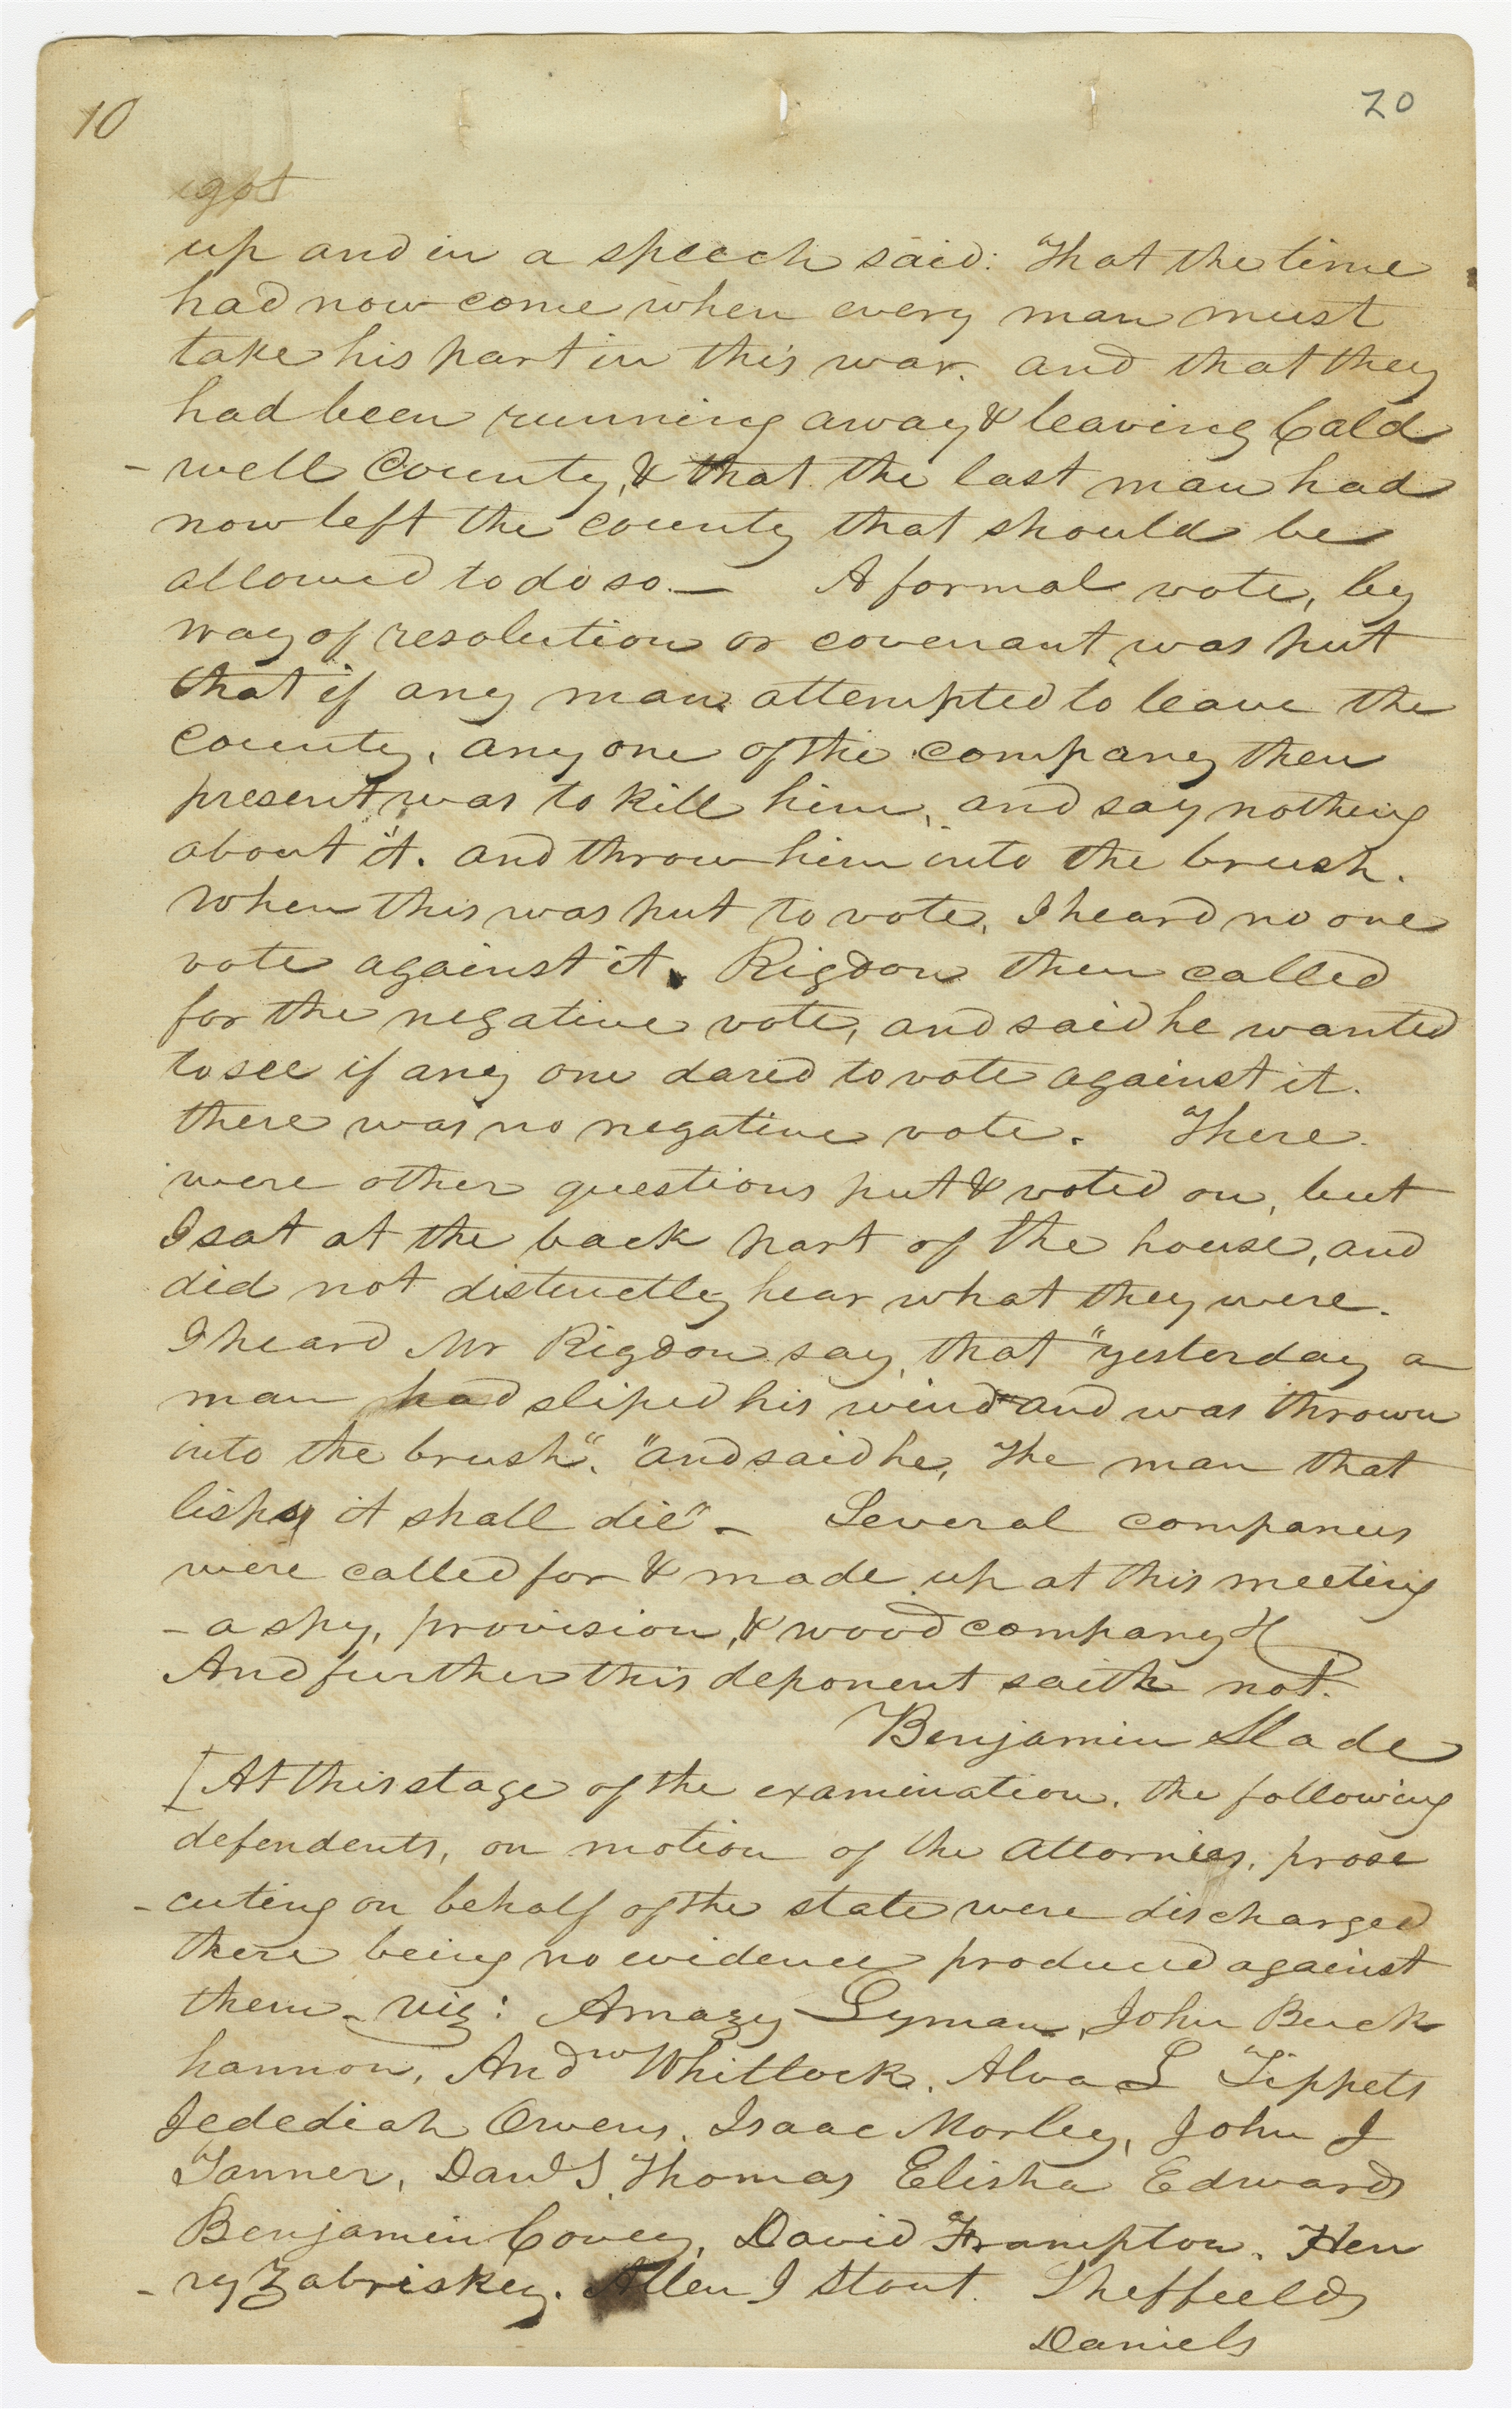 10
20
got
up and in a speech said: "That the time
had now come when every man must
take his part in this war. and that they
had been running away & leaving Cald
-well County, & that the last man had
now left the county that should be
allowed to do so.— A formal vote, by
way of resolution or covenant, was put
that if any man attempted to leave the
county, any one of the company then
present was to kill him, and say nothing
about it. and throw him into the brush.
When this was put to vote, I heard no one
vote against it. Rigdon then called
for the negative vote, and said he wanted
to see if any one dared to vote against it.
there was no negative vote. There
were other questions put & voted on, but
I sat at the back part of the house, and
did not distinctly hear what they were.
I heard Mr Rigdon say, that "yesterday a
man had sliped his wind and was thrown
into the brush". "and said he, the man that
lisps it shall die" - Several companies
were called for & made up at this meeting
- a spy, provision, & wood company &
And further this deponent saith not.
Benjamin Slade
[At this stage of the examination, the following
defendents, on motion of the attornies, prose
-cuting on behalf of the state were discharged
there being no evidence produced against
them - viz: Amazy Lyman, John Buck
hannon, Andw Whitlock, Alva L Tippets
Jedediah Owens, Isaac Morley, John J
Tanner, Danl S. Thomas Elisha Edwards
Benjamin Covey, David Frampton. Hen
-ry Zabriskey. Allen J Stout. Sheffield
Daniels